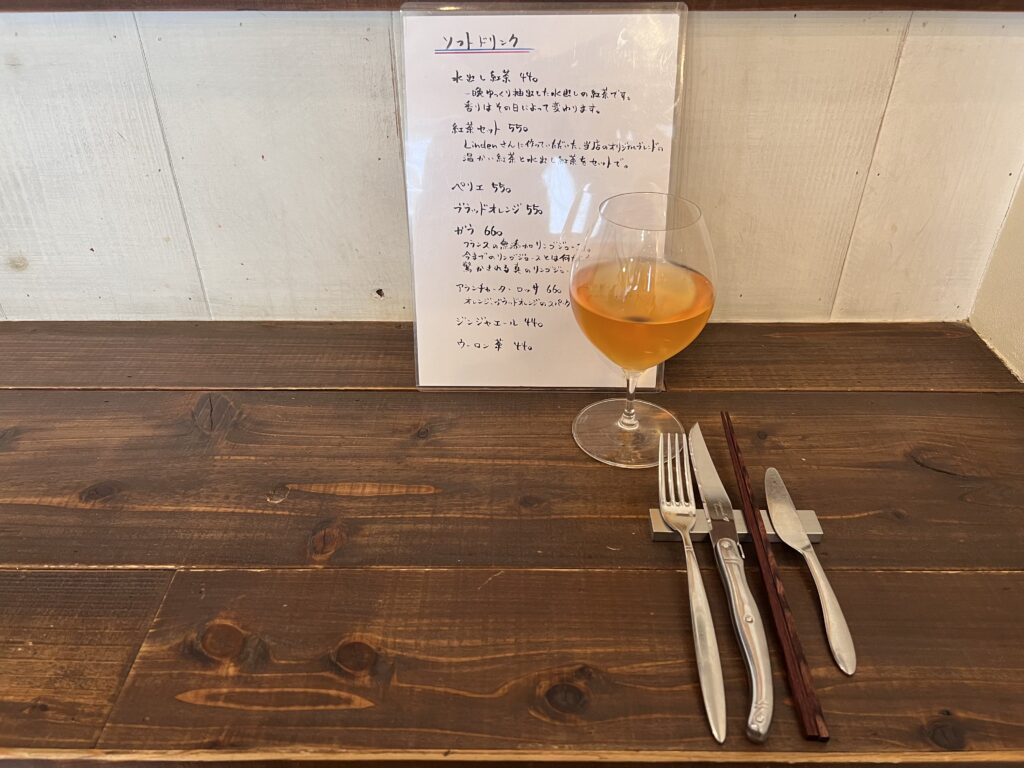 ソフトドリンク
水出し紅茶 440
一晩ゆっくり抽出した水出しの紅茶です。
香りはその日によって変わります。
紅茶セット 550
Lindenさんに作っていただいた、当店のオリジナルブレンドの
温かい紅茶と水出し紅茶をセットで。
ペリエ 550
ブラッドオレンジ 550
ガラ 660
フランスの無添加リンゴジュース。
今までのリンゴジュースとは何
驚かされる真のリンゴジュ
アランチャータ・ロッサ 660
オレンジ、ブラッドオレンジのスパーク
ジンジャエール 440
ウーロン茶 440